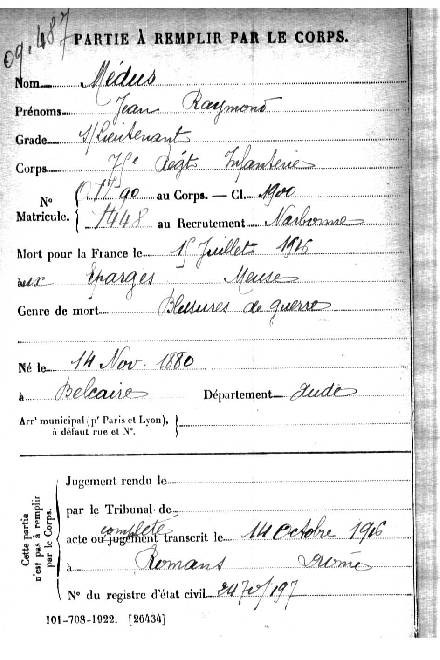 09.487
PARTIE À REMPLIR PAR LE CORPS.
Nom Médus
Prénoms Jean Raymond
Grade S/Lieutenant
Corps Régt Infanterie
No Matricule. { 90 au Corps. — Cl. 1900
1448 au Recrutement Narbonne
Mort pour la France le Juillet 1916
aux Eparges Meuse
Genre de mort Blessures de guerre
Né le 14 Nov. 1880
à Belcaire Département Aude
Arrt municipal (pr Paris et Lyon),
à défaut rue et No.
Cette partie
n'est pas à remplir
par le Corps.
Jugement rendu le
par le Tribunal de
complété
acte ou jugement transcrit le 14 Octobre 1916
à Romans Drôme
No du registre d'état civil 2470/197
101-708-1922. [26434]